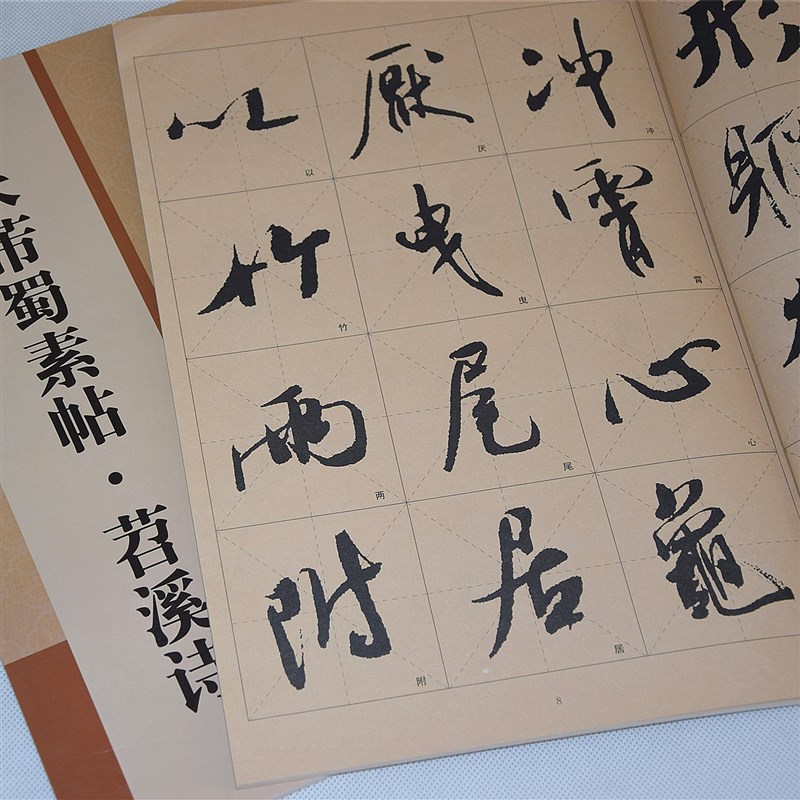 冲霄心龜
冲
霄
心
厭曳尾居
厌
曳
尾
居
以竹兩附
以
竹
两
附
8
芾蜀素帖·苕溪诗